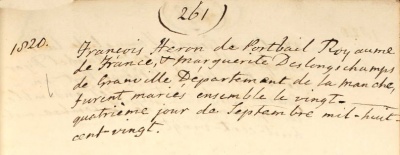 (261)
1820. François Heron de Portbail Royaume
de France, & Marguerite Deslongschamps
de Granville Département de la Manche,
furent mariés ensemble le vingt-
quatrième jour de Septembre mil-huit
cent-vingt.